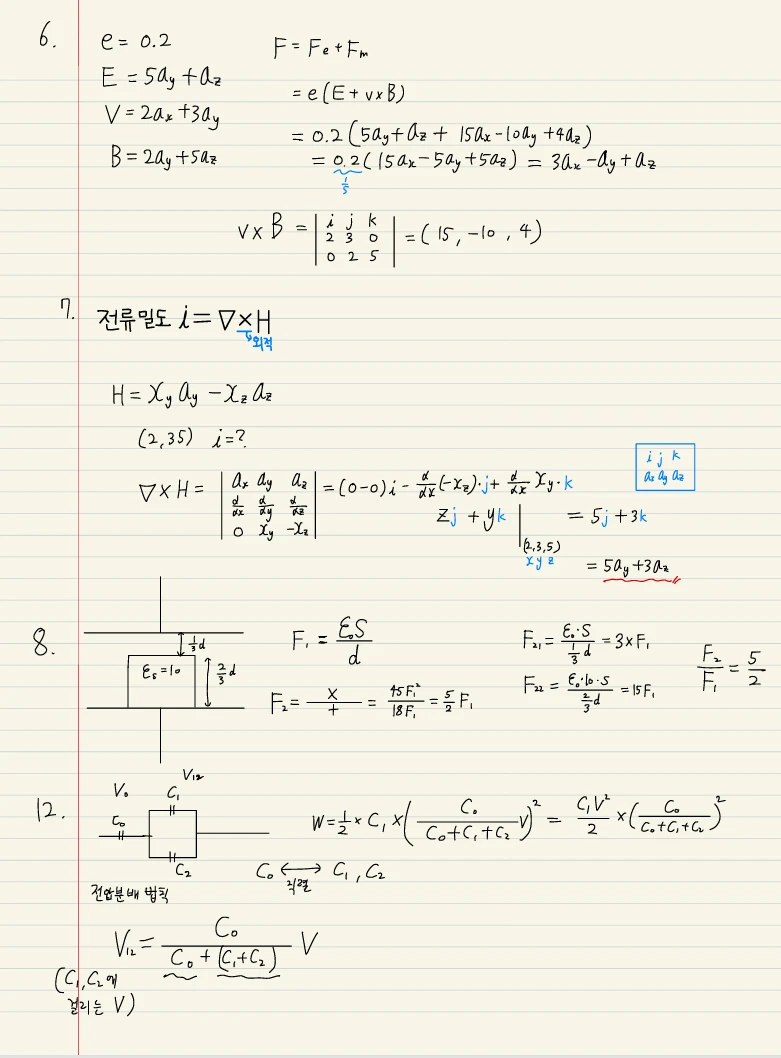 6.
e = 0.2
E = 5ay + az
V = 2ax + 3ay
B = 2ay + 5az
F = Fe + Fm
= e(E + v×B)
= 0.2(5ay + az + 15ax - 10ay + 4az)
= 0.2(15ax - 5ay + 5az) = 3ax - ay + az
1/5
v×B = | i j k | = (15, -10, 4)
2 3 0
0 2 5
7.
전류밀도 i = ∇×H
↳외적
H = xy ay - xz az
(2,35) i=?
i j k
ax ay az
∇×H = | ax ay az | = (0-0)i - d/dx(-xz)·j + d/dx xy·k
d/dx d/dy d/dz
0 xy -xz
zj + yk |(2,3,5) = 5j + 3k
x y z
= 5ay + 3az
8.
1/3 d
εs = 10
2/3 d
F1 = ε0S/d
F2 = ×/+ = 45F1²/18F1 = 5/2 F1
F21 = ε0·S / (1/3 d) = 3×F1
F22 = ε0·10·S / (2/3 d) = 15F1
F2/F1 = 5/2
12.
V0 V12
C0 C1
C2
전압분배 법칙
W = 1/2 × C1 × (C0/(C0+C1+C2) V)² = C1V²/2 × (C0/(C0+C1+C2))²
C0 ↔ C1, C2
직렬
V12 = C0/(C0+(C1+C2)) V
(C1, C2에
걸리는 V)